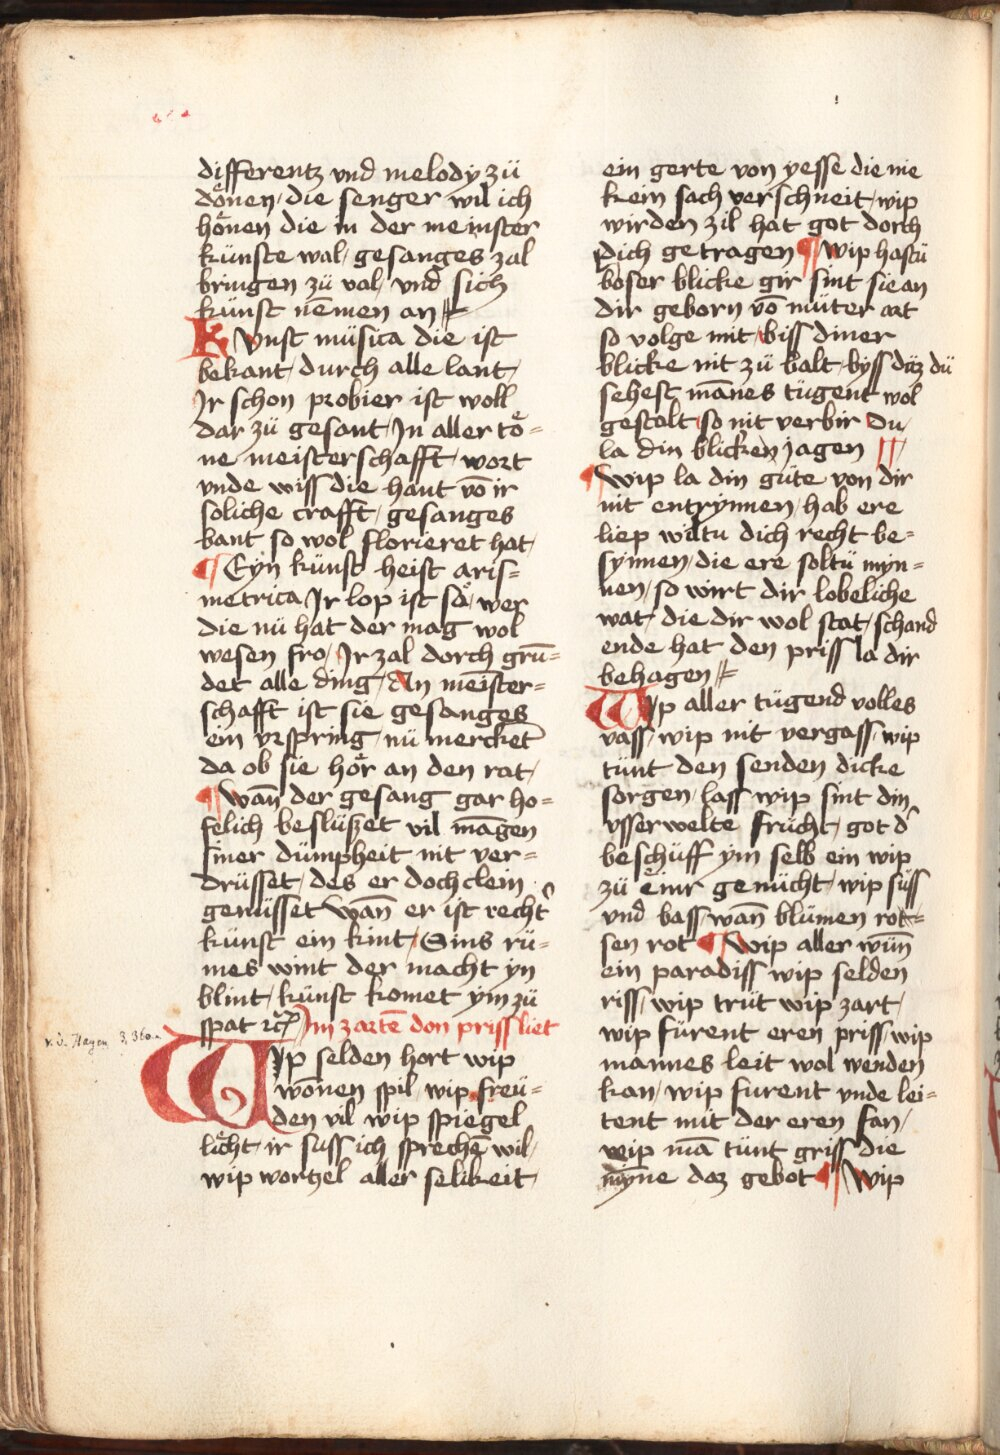 differentz vnd melody zü
doͤnen / die senger wil ich
hoͤnen die in der meinster
künste wal / gesanges zal
bringen zü val / vnd sich
künst nēmen an
Kvnst müsica die ist
bekant / durch alle lant /
Ir schon probier ist woll
dar zü gesant / In aller toͤ=
ne meisterschafft / wort
vnde wiss die hant vō ir
soliche crafft / gesanges
bant so wol florieret hat /
¶ Eyn künst heist aris=
metrica Ir lop ist so / wer
die nü hat der mag wol
wesen fro / Ir zal dorch grǖ=
det alle ding / An meīster=
schafft ist sie gesanges
ein vrspring / nü mercket
da ob sie hoͤr an den rat /
¶ wan̄ der gesang gar ho=
felich beslüszet vil māgen
siner dümpheit nit ver=
drüsset / des er doch clein
genüsset wan̄ er ist recht
künst ein kint / Sins rü=
mes wint der macht yn
blint / künst komet ym zü
spat rc̄ Im zartē don priss liet
v. d. Hagen 3, 360
Wip selden hort wip
wōnen spil / wip freü=
den vil wip spiegel
licht / ir suss ich sprechē wil /
wip wortzel aller selikeit /
ein gerte von yesse die nie
kein sach verschneit / wip
wirden zil hat got dorch
dich getragen ¶ Wip hastü
boser blicke gir sint sie an
dir geborn vō müter art
so volge mit / biss diner
blicke nit zü balt / byss daz dü
sehest mānes tügent wol
gestalt / so nit verbir Du /
la din blicken jagen
¶ Wip la din güte von dir
nit entrynnen / hab ere
liep wiltu dich recht be=
synnen / die ere soltü myn=
nen / so wirt dir lobeliche
wat / die dir wol stat / schand
ende hat den priss la dir
behagen
Wip aller tügend volles
vass / wip nit vergass / wip
tünt den senden dicke
sorgen / lass wip sint din
vsserwelte frücht / got d'
beschüff ym selb ein wip
zü einr gemücht / wip süss
vnd bass / wan̄ blümen rot=
sen rot ¶ Wip aller wün̄
ein paradiss wip selden
riss / wip trüt wip zart /
wip fürent eren priss / wip
mannes leit wol wenden
kan / wip furent vnde lei=
tent mit der eren fan /
weip mā tünt griss die
myne daz gebot ¶ Wip